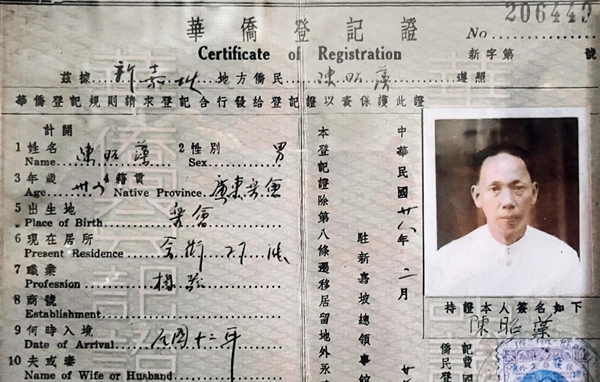 華僑登記證
206443
Certificate of Registration
No
新字第 號
茲據 新嘉坡 地方僑民 陳昭藻 遵照
華僑登記規則請求登記合行發給登記證以資保護此證
計開
1 姓名 陳昭藻 2 性別 男
Name Sex
3 年歲 卅 4 籍貫 廣東樂會
Age Native Province
5 出生地 樂會
Place of Birth
6 現在居所
Present Residence
7 職業
Profession
8 商號
Establishment
9 何時入境 民國十二年
Date of Arrival
10 夫或妻
Name of Wife or Husband
本登記證除第八條遷移居留地外
中華民國卅八年二月
駐新嘉坡總領事館
持證本人簽名如下
陳昭藻
記費國
僑民登